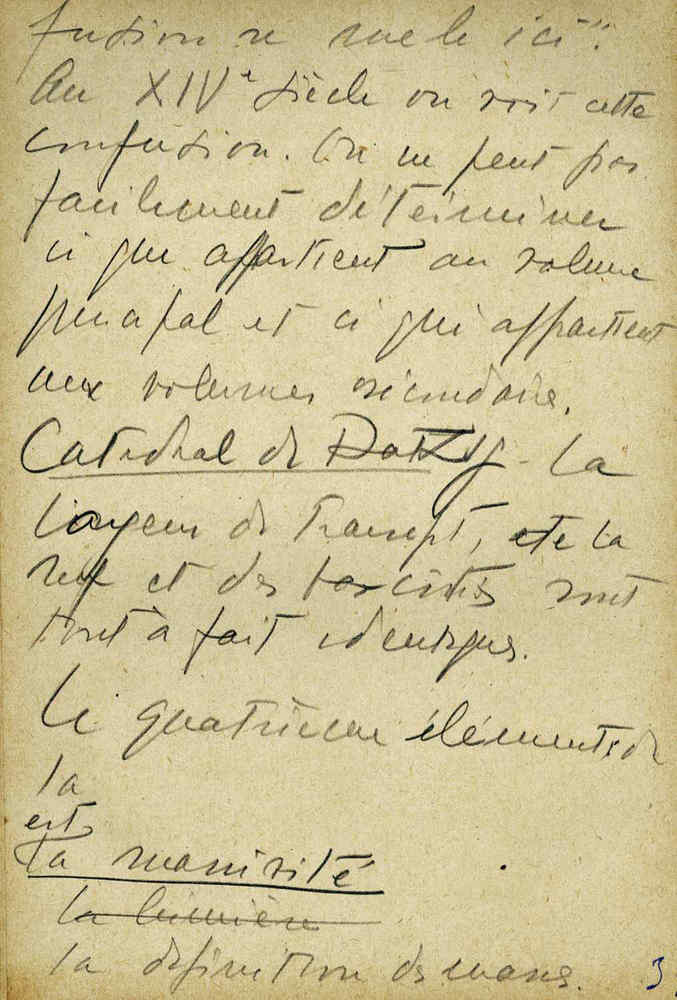 fusion se mele ici".
Au XIVe siècle on voit cette
confusion. On ne peut pas
facilement détérminer
ce que appartient au volume
principal et ce qui appartient
aux volumes secondaire.
Catedral de - La
largeur de transept, de la
nef et des bas cotés sont
tout à fait identiques.
Le quatrième élément de
la
est
la massivité
la lumière
la definition des mases.
3